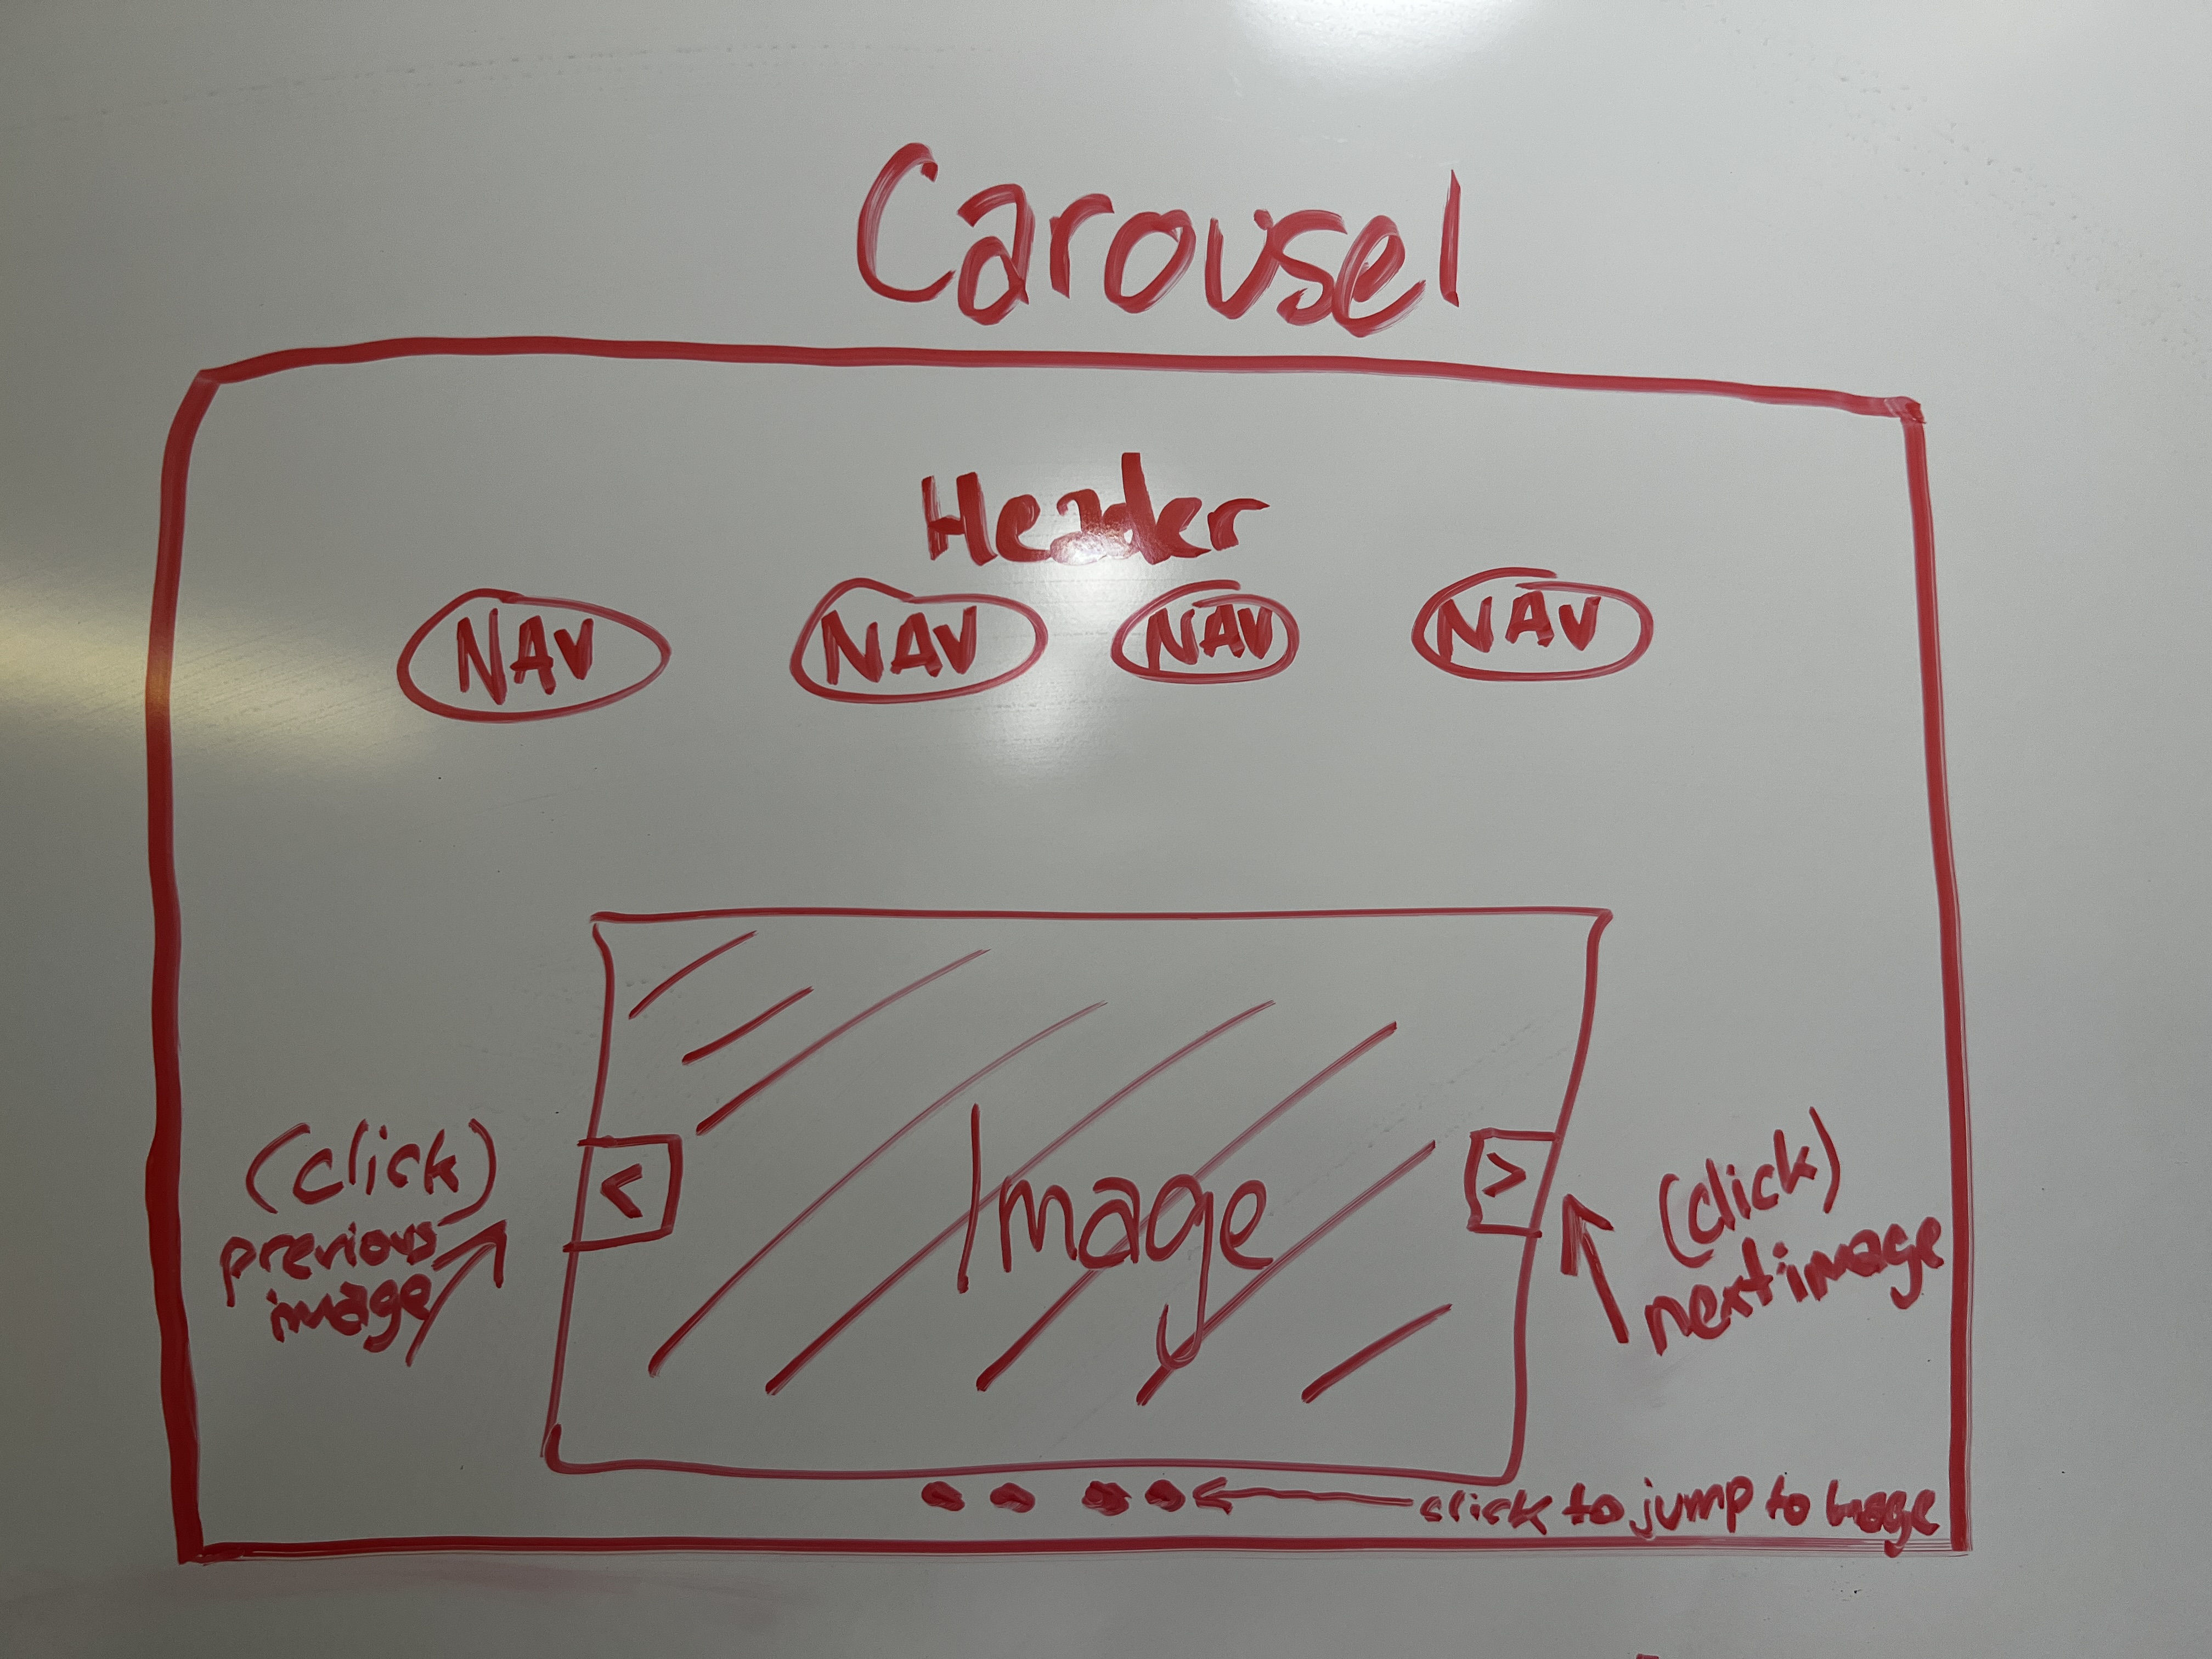 Carousel
Header
NAV NAV NAV NAV
(click)
previous
image
<
Image
>
(click)
next image
click to jump to Image